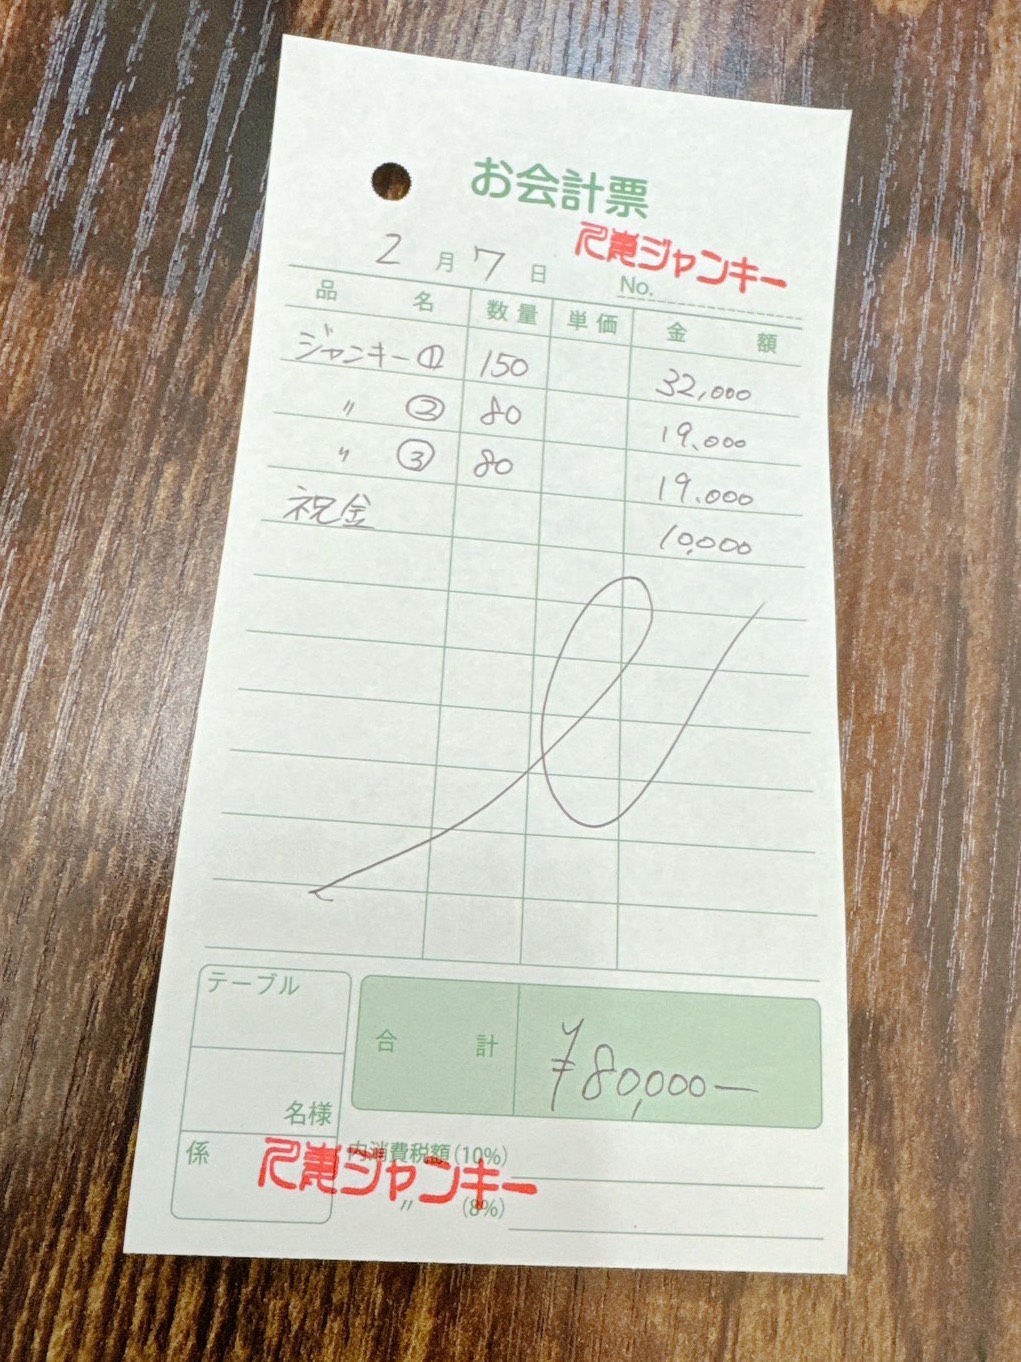 お会計票
ジャンキー
2月7日 No.
品名 数量 単価 金額
ジャンキー① 150 32,000
〃 ② 80 19,000
〃 ③ 80 19,000
祝金 10,000
テーブル
名様
係
合計 ¥80,000ー
内消費税額(10%)
ジャンキー
〃 (8%)